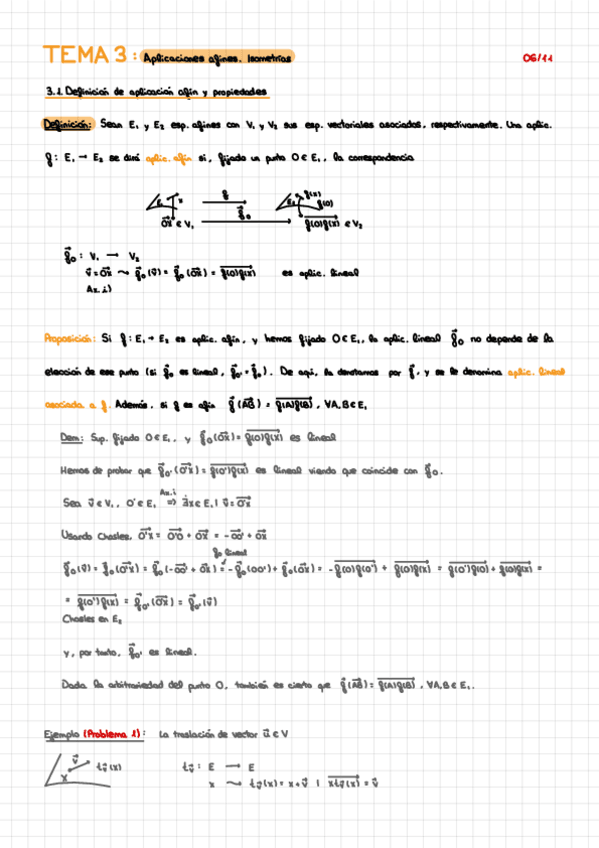 TEMA 3: Aplicaciones afines. Isometrías
06/11
3.1. Definición de aplicación afín y propiedades
Definición: Sean E₁ y E₂ esp. afines con V₁ y V₂ sus esp. vectoriales asociados, respectivamente. Una aplic.
f: E₁ → E₂ se dirá aplic. afín si, fijado un punto O ∈ E₁, la correspondencia
E₁ x f E₂ f(x) f(O)
Ox⃗ ∈ V₁ f⃗₀ f(O)f(x)⃗ ∈ V₂
f⃗₀: V₁ → V₂
v⃗ = Ox⃗ ⤳ f⃗₀(v⃗) = f⃗₀(Ox⃗) = f(O)f(x)⃗ es aplic. lineal
Ax. i)
Proposición: Si f: E₁ → E₂ es aplic. afín, y hemos fijado O ∈ E₁, la aplic. lineal f⃗₀ no depende de la
elección de ese punto (si f⃗₀ es lineal, f⃗₀' = f⃗₀). De aquí, la denotamos por f⃗, y se le denomina aplic. lineal
asociada a f. Además, si f es afín f⃗(AB⃗) = f(A)f(B)⃗, ∀A,B ∈ E₁
Dem: Sup. fijado O ∈ E₁, y f⃗₀(Ox⃗) = f(O)f(x)⃗ es lineal
Hemos de probar que f⃗₀'(O'x⃗) = f(O')f(x)⃗ es lineal viendo que coincide con f⃗₀.
Sea v⃗ ∈ V₁, O' ∈ E₁ Ax.i ⇒ ∃x ∈ E₁ | v⃗ = O'x⃗
Usando Chasles, O'x⃗ = O'O⃗ + Ox⃗ = -OO'⃗ + Ox⃗
f₀ lineal
f⃗₀(v⃗) = f⃗₀(O'x⃗) = f⃗₀(-OO'⃗ + Ox⃗) = -f⃗₀(OO') + f⃗₀(Ox⃗) = -f(O)f(O')⃗ + f(O)f(x)⃗ = f(O')f(O)⃗ + f(O)f(x)⃗ =
= f(O')f(x)⃗ = f⃗₀'(O'x⃗) = f⃗₀'(v⃗)
Chasles en E₂
y, por tanto, f⃗₀' es lineal.
Dada la arbitrariedad del punto O, también es cierto que f⃗(AB⃗) = f(A)f(B)⃗, ∀A,B ∈ E₁.
Ejemplo (Problema 1): La traslación de vector u⃗ ∈ V
x v⃗ t_v⃗(x) t_v⃗: E → E
x ⤳ t_v⃗(x) = x + v⃗ | xt_v⃗(x)⃗ = v⃗